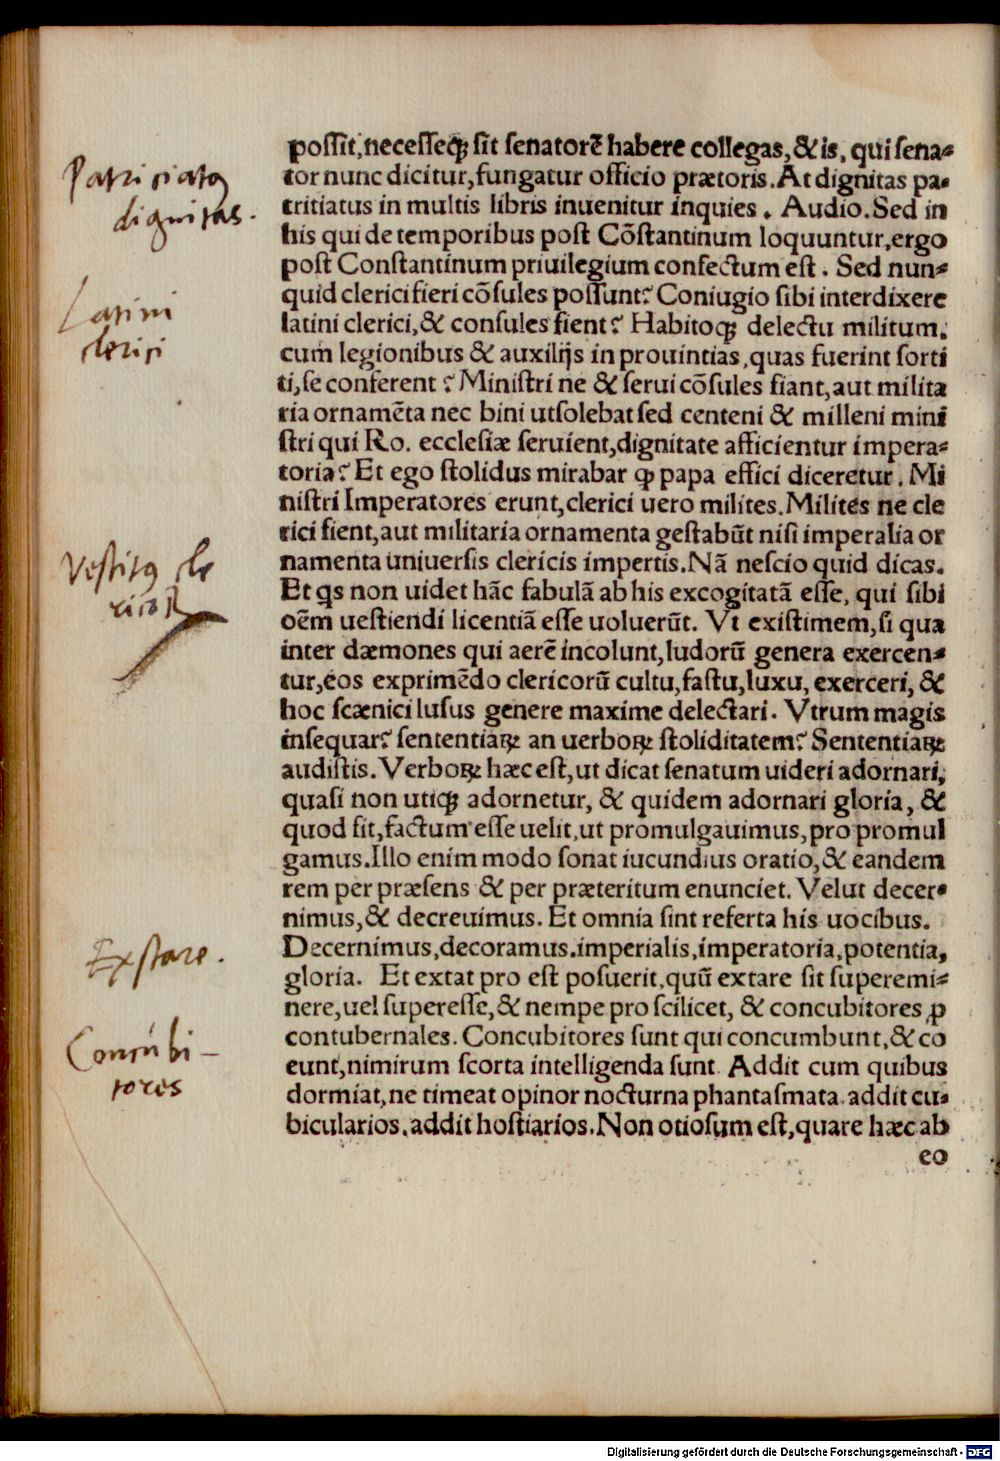 possit, necesseqꝫ sit senatorē habere collegas, & is, qui sena⸗
tor nunc dicitur, fungatur officio prætoris. At dignitas pa⸗
tritiatus in multis libris inuenitur inquies. Audio. Sed in
his qui de temporibus post Cōstantinum loquuntur, ergo
post Constantinum priuilegium confectum est. Sed nun⸗
quid clerici fieri cōsules possunt? Coniugio sibi interdixere
latini clerici, & consules fient? Habitoqꝫ delectu militum.
cum legionibus & auxilijs in prouintias, quas fuerint sorti
ti, se conferent? Ministri ne & serui cōsules fiant, aut milita
ria ornamēta nec bini ut solebat sed centeni & milleni mini
stri qui Ro. ecclesiæ seruient, dignitate afficientur impera⸗
toria? Et ego stolidus mirabar ꝙ papa effici diceretur. Mi
nistri Imperatores erunt, clerici uero milites. Milites ne cle
rici fient, aut militaria ornamenta gestabūt nisi imperalia or
namenta uniuersis clericis impertis. Nā nescio quid dicas.
Et qs non uidet hāc fabulā ab his excogitatā esse, qui sibi
oēm uestiendi licentiā esse uoluerūt. Vt existimem, si qua
inter dæmones qui aerē incolunt, ludorū genera exercen⸗
tur, eos exprimēdo clericorū cultu, fastu, luxu, exerceri, &
hoc scænici lusus genere maxime delectari. Vtrum magis
insequar? sententiaꝝ an uerboꝝ stoliditatem? Sententiaꝝ
audistis. Verboꝝ hæc est, ut dicat senatum uideri adornari,
quasi non utiqꝫ adornetur, & quidem adornari gloria, &
quod fit, factum esse uelit, ut promulgauimus, pro promul
gamus. Illo enim modo sonat iucundius oratio, & eandem
rem per præsens & per præteritum enunciet. Velut decer⸗
nimus, & decreuimus. Et omnia sint referta his uocibus.
Decernimus, decoramus. imperialis, imperatoria, potentia,
gloria. Et extat pro est posuerit, quū extare sit superemi⸗
nere, uel superesse, & nempe pro scilicet, & concubitores ꝓ
contubernales. Concubitores sunt qui concumbunt, & co
eunt, nimirum scorta intelligenda sunt. Addit cum quibus
dormiat, ne timeat opinor nocturna phantasmata. addit cu⸗
bicularios. addit hostiarios. Non otiosum est, quare hæc ab
eo
Patriciatꝰ
dignitas.
Latini
clerici
Vestitꝰ cle
ricoꝝ
Exstare.
Concubi—
tores
Digitalisierung gefördert durch die Deutsche Forschungsgemeinschaft - DFG